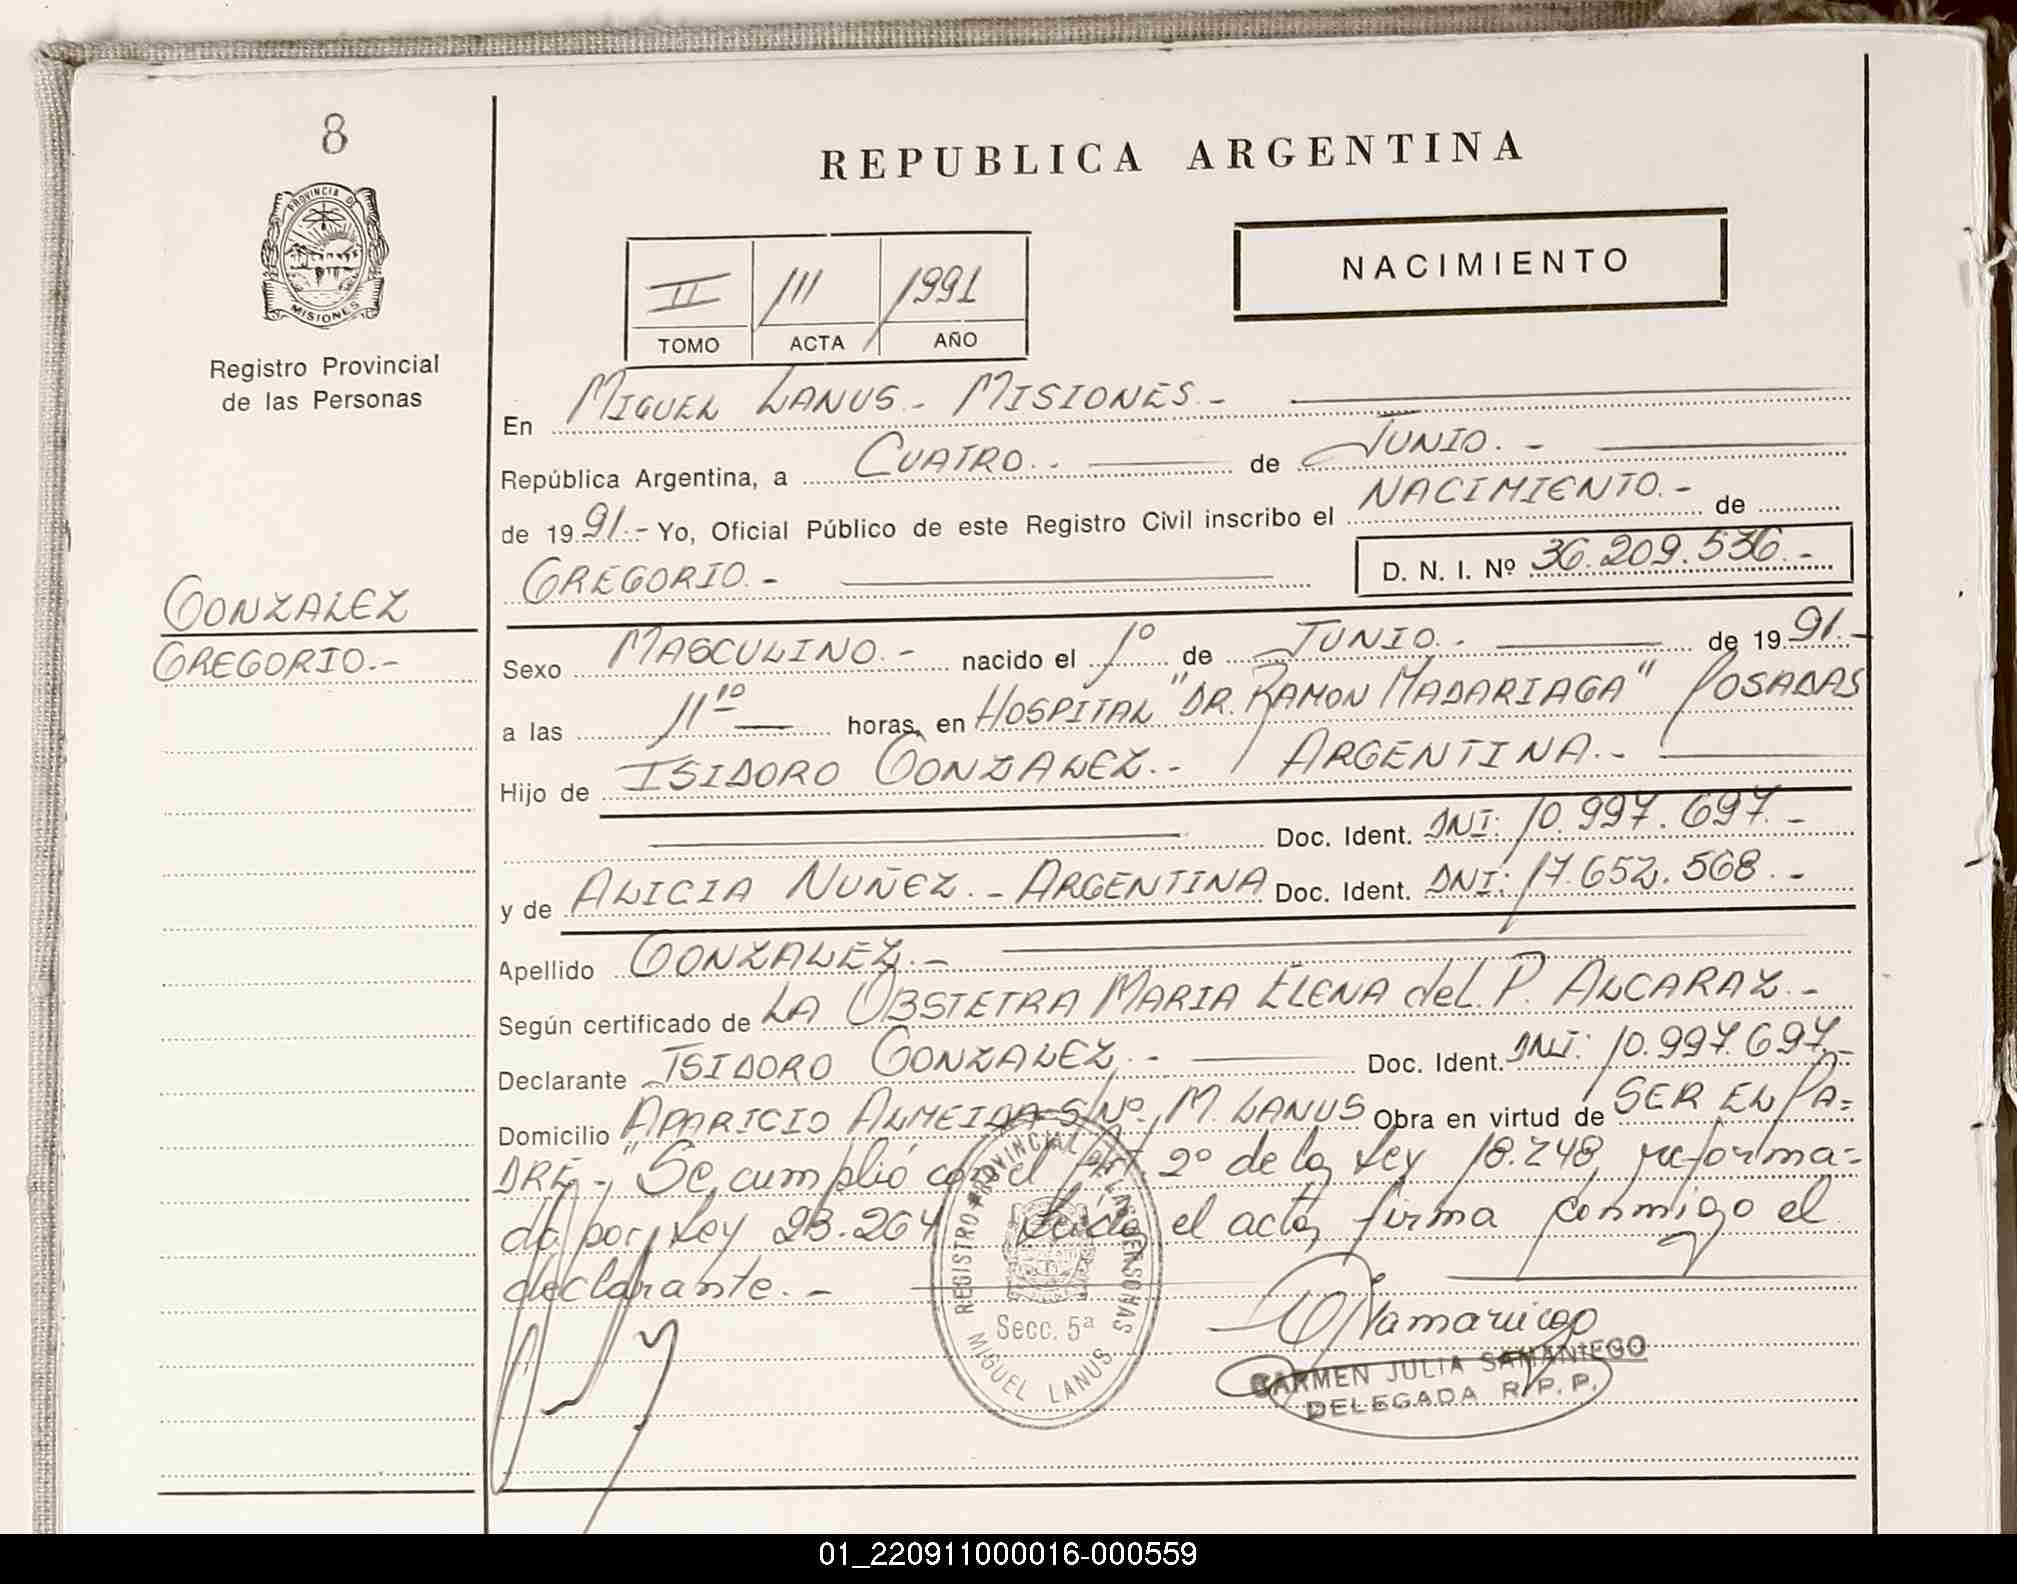 8
REPUBLICA ARGENTINA
PROVINCIA DE MISIONES
NACIMIENTO
II 111 1991
TOMO ACTA AÑO
Registro Provincial
de las Personas
En MIGUEL LANUS.- MISIONES.-
República Argentina, a CUATRO.- de JUNIO.-
de 1991.- Yo, Oficial Público de este Registro Civil inscribo el NACIMIENTO.- de
GREGORIO.- D. N. I. Nº 36.209.536.-
GONZALEZ
GREGORIO.-
Sexo MASCULINO.- nacido el 1º de JUNIO.- de 1991.-
a las 11¹⁰ horas, en HOSPITAL "DR. RAMON MADARIAGA" POSADAS
Hijo de ISIDORO GONZALEZ.- ARGENTINA.-
Doc. Ident. DNI: 10.997.697.-
y de ALICIA NUÑEZ.- ARGENTINA Doc. Ident. DNI: 17.652.568.-
Apellido GONZALEZ.-
Según certificado de LA OBSTETRA MARIA ELENA del P. ALCARAZ.-
Declarante ISIDORO GONZALEZ.- Doc. Ident. DNI: 10.997.697.-
Domicilio APARICIO ALMEIDA S/Nº, M. LANUS Obra en virtud de SER EL PA=
DRE.- "Se cumplió con el Art 2º de la Ley 18.248, reforma=
da por Ley 23.264 Leída el acta, firma conmigo el
declarante.-
REGISTRO PROVINCIAL DE LAS PERSONAS
Secc. 5ª
MIGUEL LANUS
CARMEN JULIA SAMANIEGO
DELEGADA R.P.P.
01_220911000016-000559